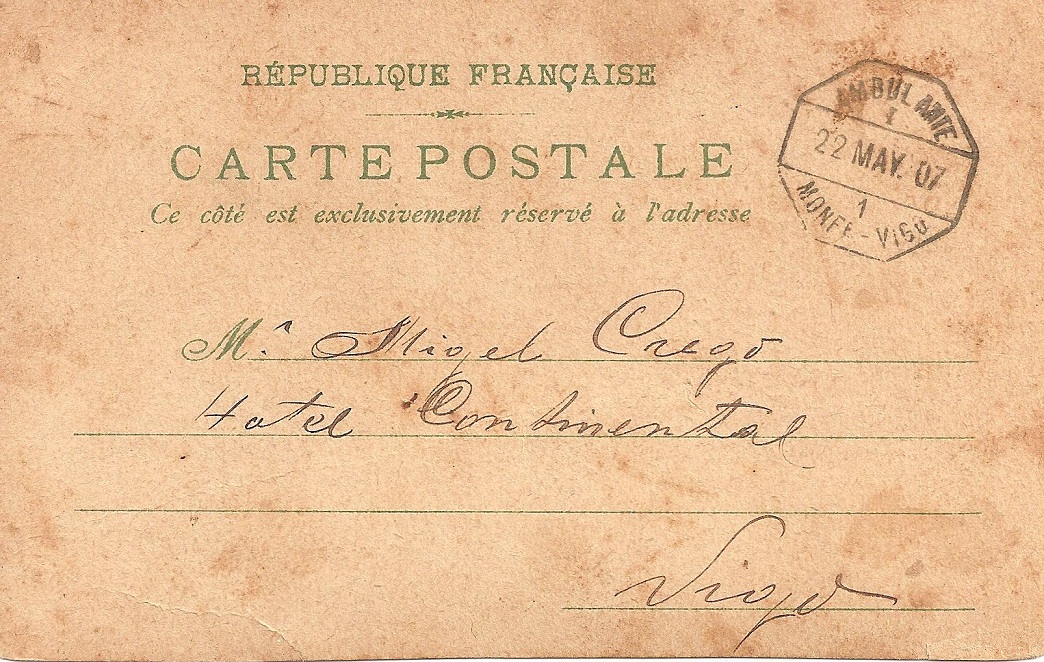 RÉPUBLIQUE FRANÇAISE
CARTE POSTALE
Ce côté est exclusivement réservé à l'adresse
AMBULANTE
1
22 MAY. 07
1
MONFE-VIGO
M.r Migel Crego
Hotel Continental
Vigo